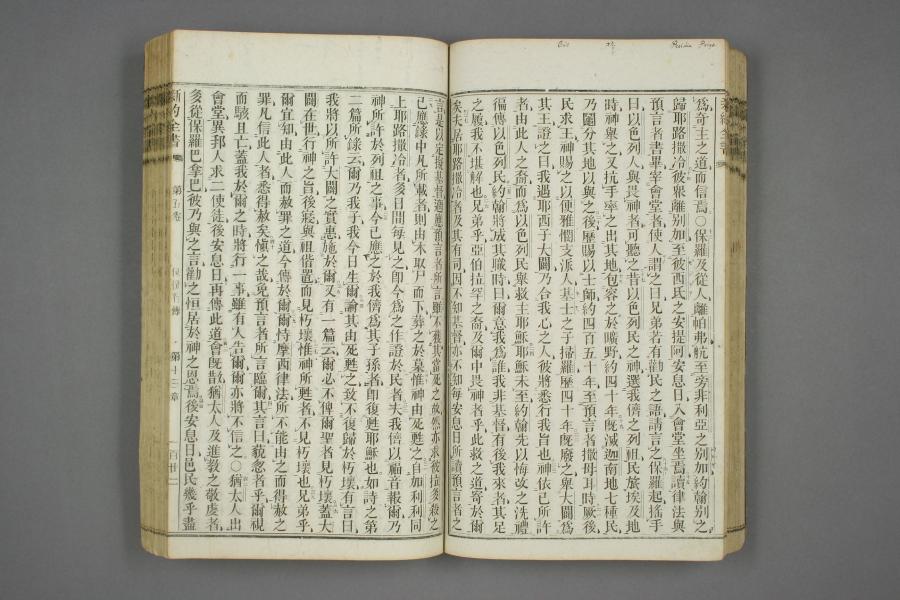 Pelidia Perga
爲奇主之道而信焉○保羅及從人離帕弗航至旁非利亞之別加約翰別之
歸耶路撒冷彼衆離別加至彼西氏之安提阿安息日入會堂坐焉讀律法與
預言者書畢宰會堂者使人謂之曰兄弟若有勸民之語請言之保羅起搖手
曰以色列人與畏神者可聽之昔以色列民之神選我儕之列祖民旅埃及地
時神舉之又抗手率之出其地包容之於曠野約四十年旣滅迦南地七種民
乃鬮分其地以與之後歷賜以士師約四百五十年至預言者撒母耳時厥後
民求王神賜之以便雅憫支派人基士之子掃羅歷四十年旣廢之舉大闢爲
其王證之曰我遇耶西子大闢乃合我心之人彼將悉行我旨也神依己所許
者由此人之裔而爲以色列民舉救主耶穌耶穌未至約翰先以悔改之洗禮
徧傳以色列民約翰將成其職時曰爾意我爲誰我非基督有後我來者其足
之履我不堪解也兄弟乎亞伯拉罕之裔及爾中畏神者乎此救之道寄於爾
矣夫居耶路撒冷者及其有司因不知基督亦不知每安息日所讀預言者之
言是以定擬基督適應預言者所言雖不獲其當死之故然亦求彼拉多殺之
已應錄中凡所載者則由木取尸而下葬之於墓惟神由死甦之自加利利同
上耶路撒冷者多日間每見之卽今爲之作證於民者夫我儕以福音報爾乃
神所許於列祖之事今已應之於我儕爲其子孫者卽復甦耶穌也如詩之第
二篇所錄云爾乃我子我今日生爾論其由死甦之致不復歸於朽壞有言曰
我將以所許大闢之實惠施於爾又有一篇云爾必不俾爾聖者見朽壞蓋大
闢在世行神之旨後寢與祖偕置而見朽壞惟神所甦者不見朽壞也兄弟乎
爾宜知由此人而赦罪之道今傳於爾爾恃摩西律法所不能由之而得赦之
罪凡信此人者悉得赦矣愼之哉免預言者所言臨爾其言曰藐忽者乎爾視
而駭且亡蓋我於爾之時將行一事雖有人告爾爾亦將不信之○猶太人出
會堂異邦人求二使徒後安息日再傳此道會旣散猶太人及進敎之敬虔者
多從保羅巴拿巴彼乃與之言勸之恒居於神之恩焉後安息日邑民幾乎盡
新約全書 第五卷 使徒行傳 第十三章 百廿二